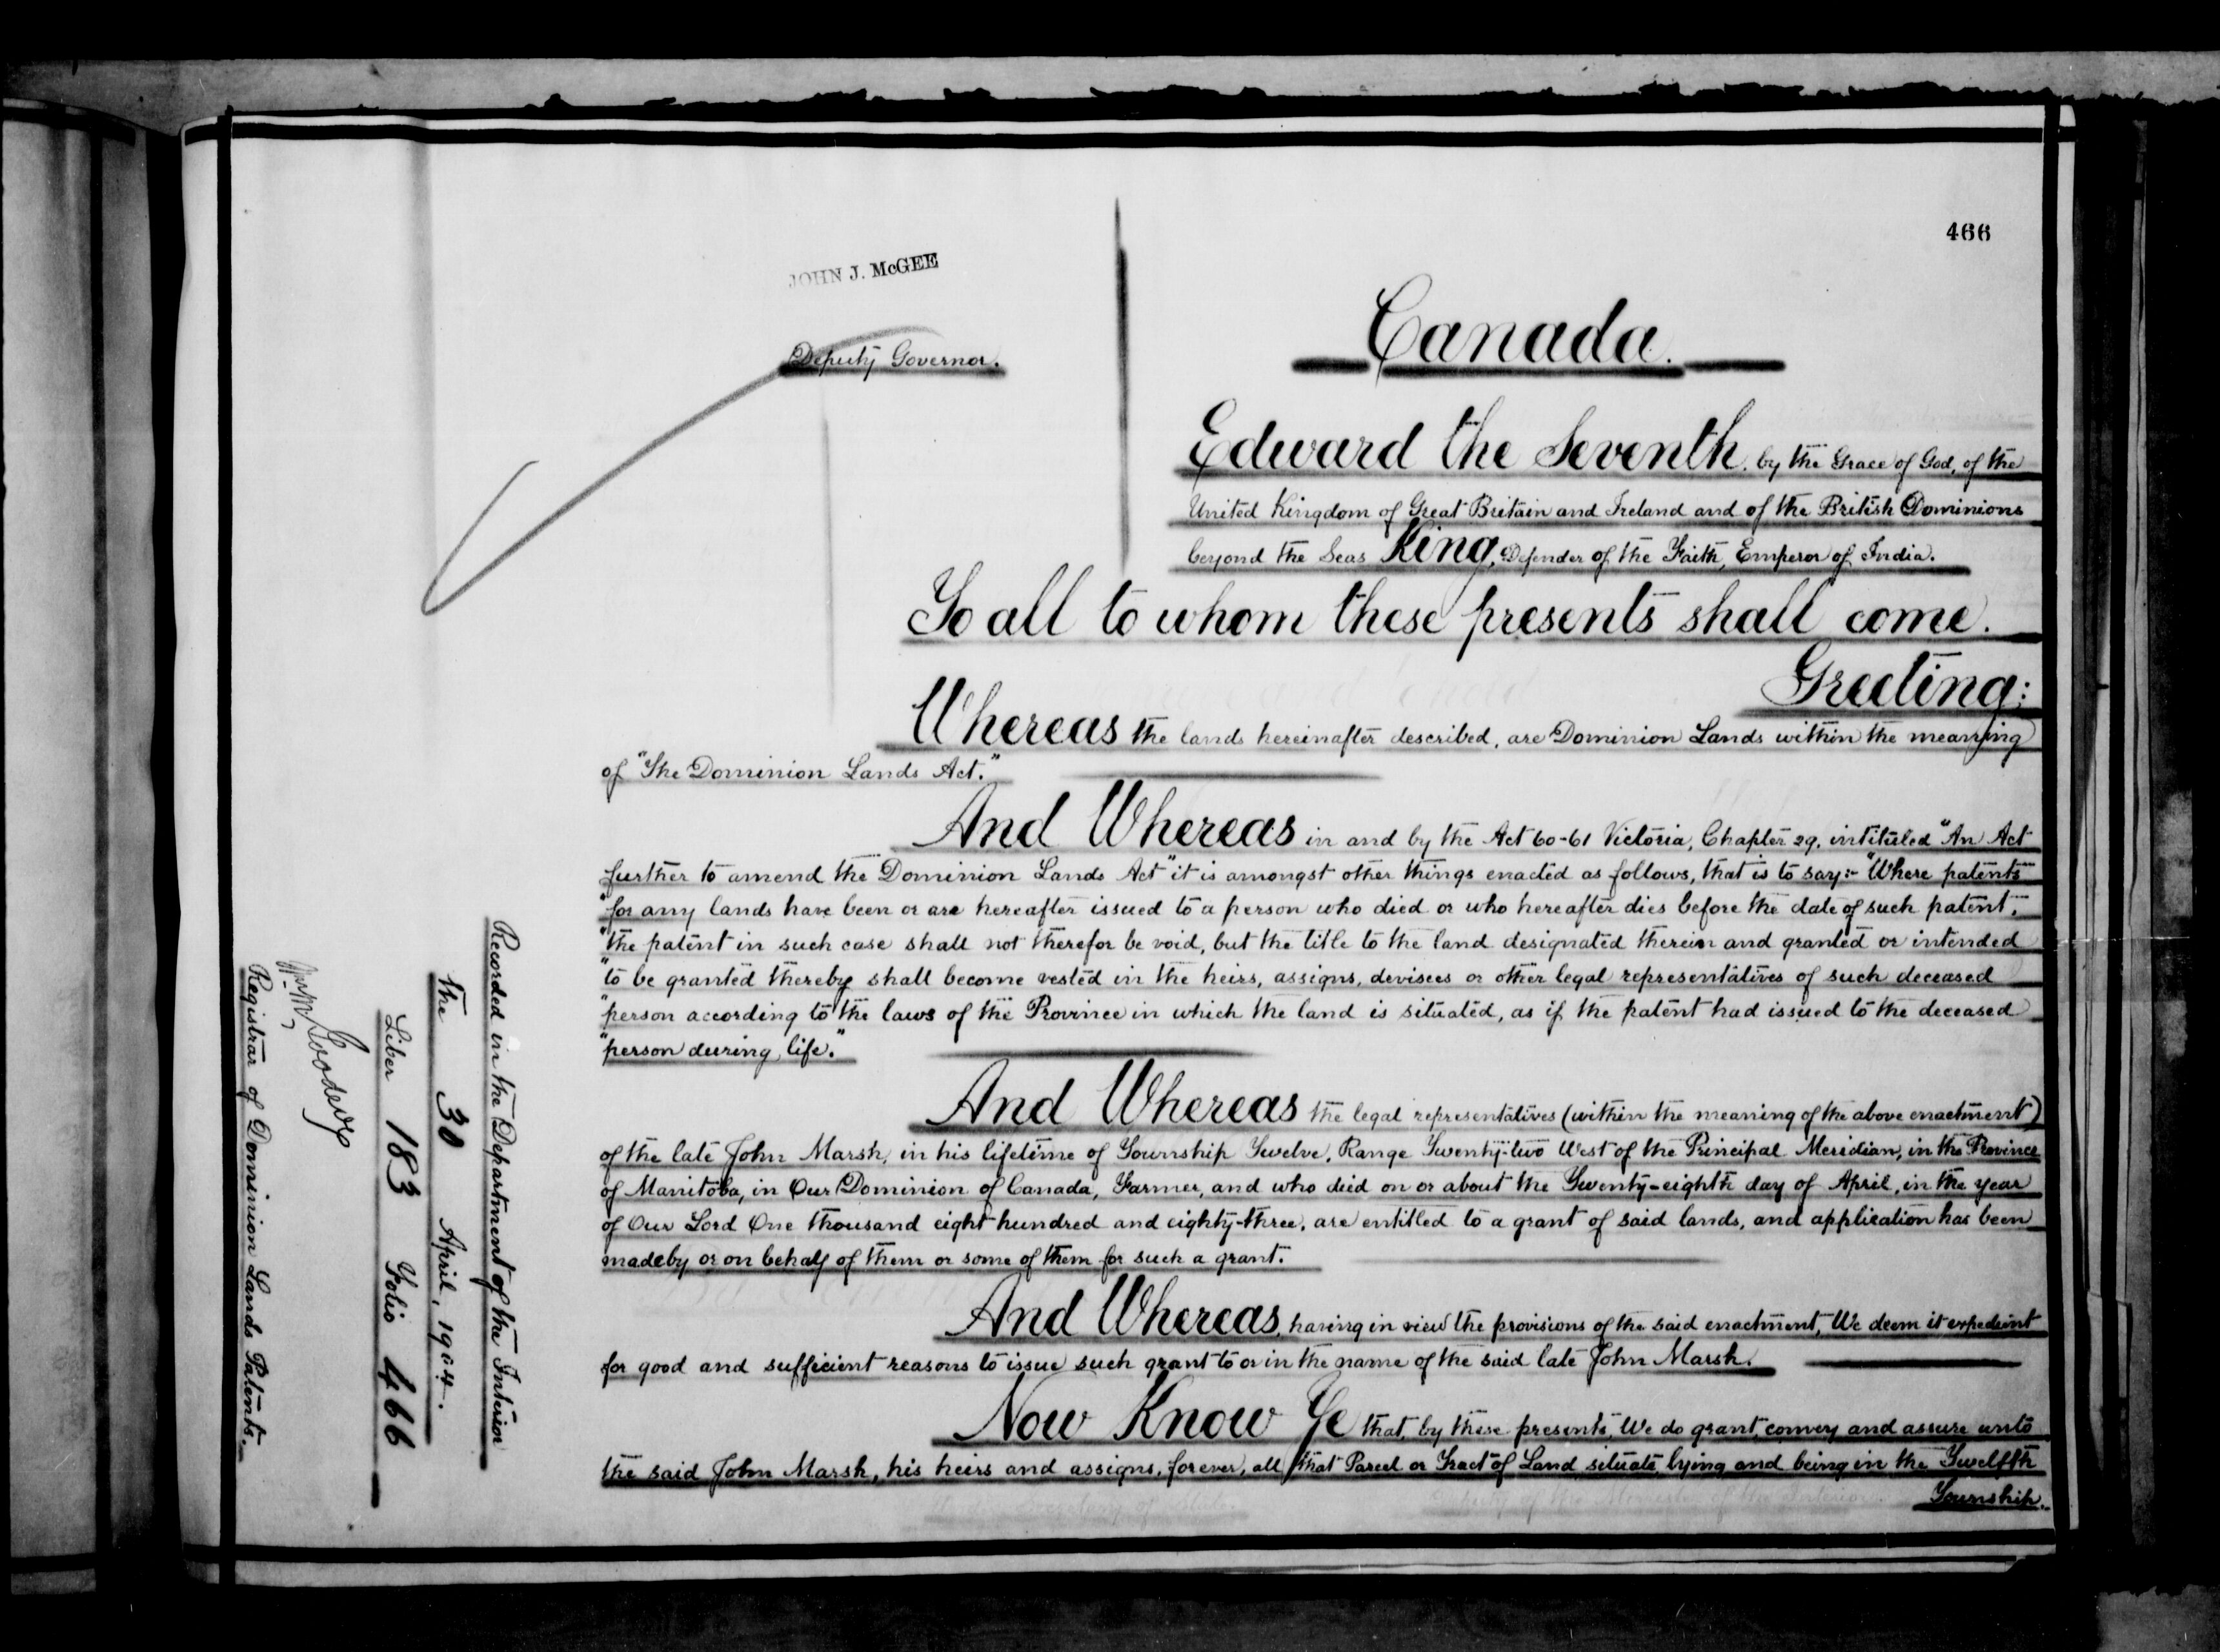 466
JOHN J. McGEE
Deputy Governor.
Canada.
Edward the Seventh, by the Grace of God, of the
United Kingdom of Great Britain and Ireland and of the British Dominions
beyond the Seas King, Defender of the Faith, Emperor of India.
To all to whom these presents shall come.
Greeting:
Whereas the lands hereinafter described, are Dominion Lands within the meaning
of "The Dominion Lands Act."
And Whereas in and by the Act 60-61 Victoria, Chapter 29, intituled "An Act
further to amend the Dominion Lands Act" it is amongst other things enacted as follows, that is to say:- "Where patents
"for any lands have been or are hereafter issued to a person who died or who hereafter dies before the date of such patent,
"the patent in such case shall not therefor be void, but the title to the land designated therein and granted or intended
"to be granted thereby shall become vested in the heirs, assigns, devisees or other legal representatives of such deceased
"person according to the laws of the Province in which the land is situated, as if the patent had issued to the deceased
"person during life."
And Whereas the legal representatives (within the meaning of the above enactment)
of the late John Marsh, in his lifetime of Township Twelve, Range Twenty-two West of the Principal Meridian, in the Province
of Manitoba, in Our Dominion of Canada, Farmer, and who died on or about the Twenty-eighth day of April, in the year
of Our Lord One thousand eight hundred and eighty-three, are entitled to a grant of said lands, and application has been
made by or on behalf of them or some of them for such a grant.
And Whereas, having in view the provisions of the said enactment, We deem it expedient
for good and sufficient reasons to issue such grant to or in the name of the said late John Marsh.
Now Know Ye that, by these presents, We do grant, convey and assure unto
the said John Marsh, his heirs and assigns, forever, all that Parcel or Tract of Land, situate, lying and being in the Twelfth
Township.
Recorded in the Department of the Interior
the 30 April, 1904.
Liber 183 Folio 466
Wm M Goodeve
Registrar of Dominion Lands Patents.